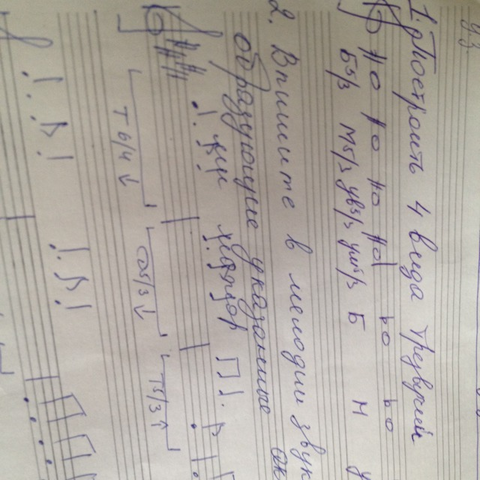 1. Построить 4 вида трезвучий
Б5/3 М5/3 ув5/3 ум5/3 Б М у
2. Впишите в мелодии звук
образующие указанные ак
Т6/4↓ 5/3↓ Т5/3↑